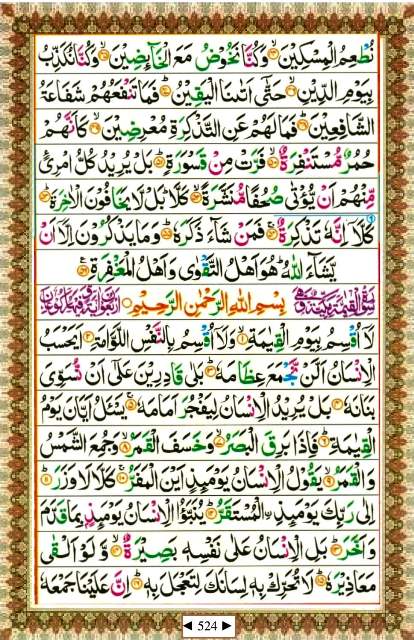 نُطْعِمُ الْمِسْكِيْنَ ۙ‏﴿۴۴﴾ وَكُنَّا نَخُوْضُ مَعَ الْخَآئِضِيْنَ ۙ‏﴿۴۵﴾ وَكُنَّا نُكَذِّبُ
بِيَوْمِ الدِّيْنِ ۙ‏﴿۴۶﴾ حَتّٰٓى اَتٰٮنَا الْيَقِيْنُ ؕ‏﴿۴۷﴾ فَمَا تَنْفَعُهُمْ شَفَاعَةُ
الشّٰفِعِيْنَ ؕ‏﴿۴۸﴾ فَمَا لَهُمْ عَنِ التَّذْكِرَةِ مُعْرِضِيْنَ ۙ‏﴿۴۹﴾ كَاَنَّهُمْ
حُمُرٌ مُّسْتَنْفِرَةٌ ۙ‏﴿۵۰﴾ فَرَّتْ مِنْ قَسْوَرَةٍ ؕ‏﴿۵۱﴾ بَلْ يُرِيْدُ كُلُّ امْرِئٍ
مِّنْهُمْ اَنْ يُّؤْتٰى صُحُفًا مُّنَشَّرَةً ۙ‏﴿۵۲﴾ كَلَّا ؕ بَلْ لَّا يَخَافُوْنَ الْاٰخِرَةَ ؕ‏﴿۵۳﴾
كَلَّاۤ اِنَّهٗ تَذْكِرَةٌ ۚ‏﴿۵۴﴾ فَمَنْ شَآءَ ذَكَرَهٗ ؕ‏﴿۵۵﴾ وَمَا يَذْكُرُوْنَ اِلَّاۤ اَنْ
يَّشَآءَ اللّٰهُ ؕ هُوَ اَهْلُ التَّقْوٰى وَاَهْلُ الْمَغْفِرَةِ ‏﴿۵۶﴾
بِسْمِ اللّٰهِ الرَّحْمٰنِ الرَّحِيْمِ
لَاۤ اُقْسِمُ بِيَوْمِ الْقِيٰمَةِ ۙ‏﴿۱﴾ وَلَاۤ اُقْسِمُ بِالنَّفْسِ اللَّوَّامَةِ ؕ‏﴿۲﴾ اَيَحْسَبُ
الْاِنْسَانُ اَلَّنْ نَّجْمَعَ عِظَامَهٗ ؕ‏﴿۳﴾ بَلٰى قٰدِرِيْنَ عَلٰٓى اَنْ نُّسَوِّىَ
بَنَانَهٗ ‏﴿۴﴾ بَلْ يُرِيْدُ الْاِنْسَانُ لِيَفْجُرَ اَمَامَهٗ ۚ‏﴿۵﴾ يَسْـَٔلُ اَيَّانَ يَوْمُ
الْقِيٰمَةِ ؕ‏﴿۶﴾ فَاِذَا بَرِقَ الْبَصَرُ ۙ‏﴿۷﴾ وَخَسَفَ الْقَمَرُ ۙ‏﴿۸﴾ وَجُمِعَ الشَّمْسُ
وَالْقَمَرُ ۙ‏﴿۹﴾ يَقُوْلُ الْاِنْسَانُ يَوْمَئِذٍ اَيْنَ الْمَفَرُّ ۚ‏﴿۱۰﴾ كَلَّا لَا وَزَرَ ؕ‏﴿۱۱﴾
اِلٰى رَبِّكَ يَوْمَئِذِ ۨالْمُسْتَقَرُّ ؕ‏﴿۱۲﴾ يُنَبَّؤُا الْاِنْسَانُ يَوْمَئِذٍۢ بِمَا قَدَّمَ
وَاَخَّرَ ؕ‏﴿۱۳﴾ بَلِ الْاِنْسَانُ عَلٰى نَفْسِهٖ بَصِيْرَةٌ ۙ‏﴿۱۴﴾ وَّلَوْ اَلْقٰى
مَعَاذِيْرَهٗ ؕ‏﴿۱۵﴾ لَا تُحَرِّكْ بِهٖ لِسَانَكَ لِتَعْجَلَ بِهٖ ؕ‏﴿۱۶﴾ اِنَّ عَلَيْنَا جَمْعَهٗ
◄ 524 ►